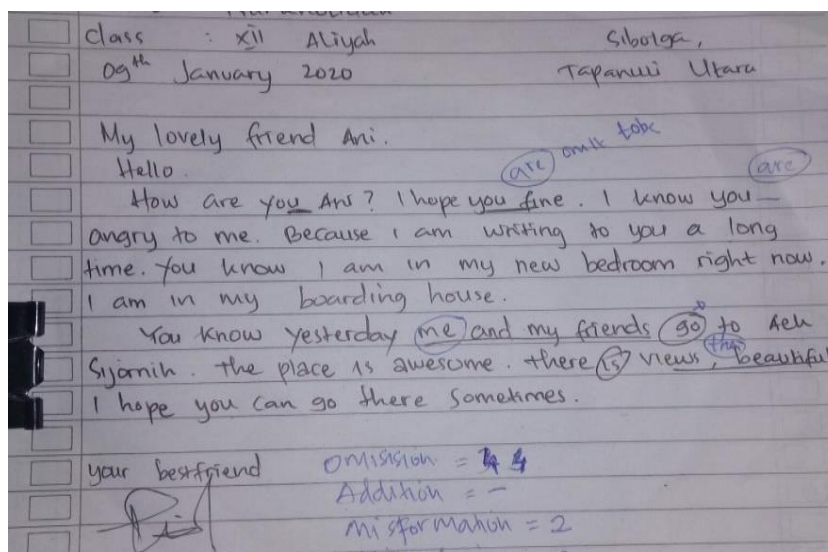 Class : XII Aliyah Sibolga,
09th January 2020 Tapanuli Utara
My lovely friend Ani.
omit tobe
Hello. are are
How are you Ani? I hope you fine. I know you
angry to me. Because I am writing to you a long
time. You know I am in my new bedroom right now.
I am in my boarding house.
You know yesterday me and my friends go to Aek
Sijornih. the place is awesome. there is views, beautiful
I hope you can go there sometimes.
your bestfriend Omission = 4
Addition = -
Misformation = 2